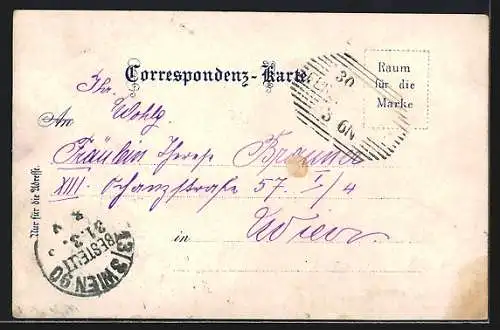 Correspondenz-Karte
Raum
für die
Marke
Ihr.
Wohlg.
An
Fräulein Therese
XIII. Schanzstraße 57. I/4
in Wien
Nur für die Adresse.
30
3 6N
13/3 WIEN 90
BESTELLT
31.3.